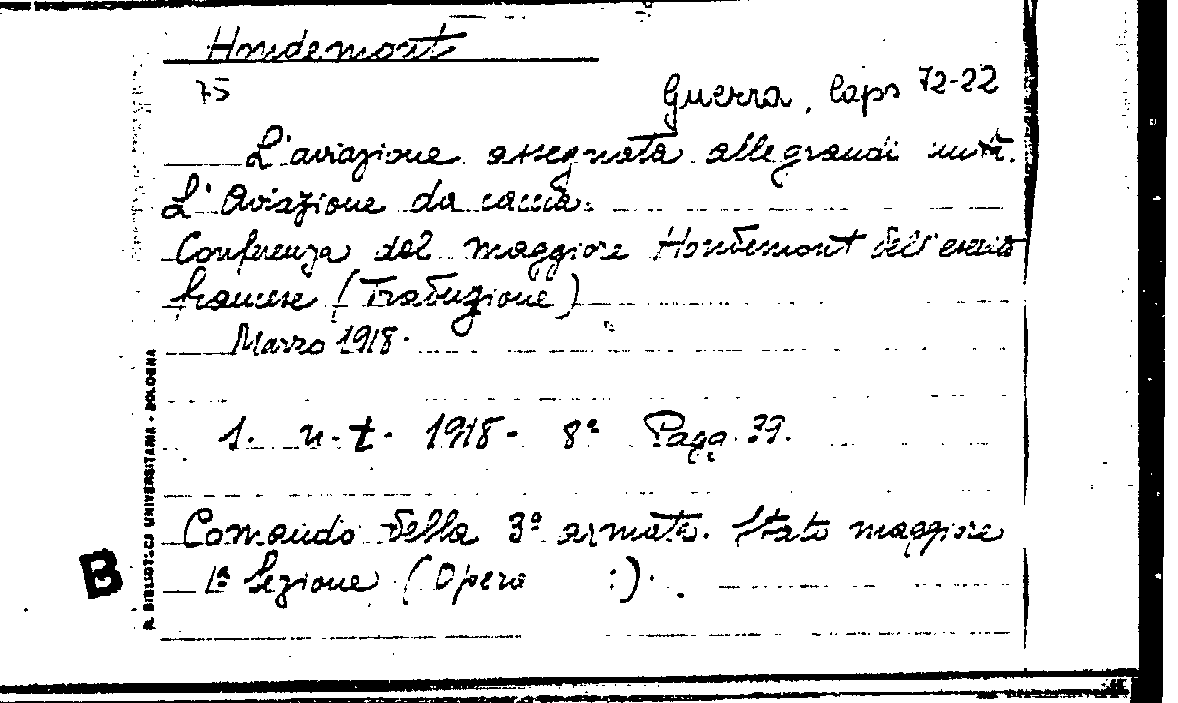 Hondemont
75
Guerra, Caps 72-22
L'aviazione assegnata alle grandi unità.
L'Aviazione da caccia.
Conferenza del maggiore Hondemont dell'esercito
francese (Traduzione)
Marzo 1918.
1. n. t. 1918. 8° Pagg. 39.
Comando della 3ª armata. Stato maggiore
1ª Sezione (Opero :).
B
R. BIBLIOTECA UNIVERSITARIA - BOLOGNA